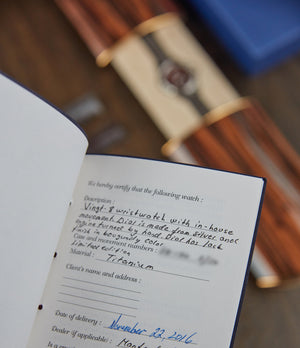 We hereby certify that the following watch :
Description :
Vingt-8 wristwatch with in-house
movement. Dial is made from silver once
engine turned by hand. Dial has lack
finish in bourgundy color
Case and movement numbers :
Limited edition
Material : Titanium
Client's name and address :
Date of delivery : November 22, 2016
Dealer if applicable :